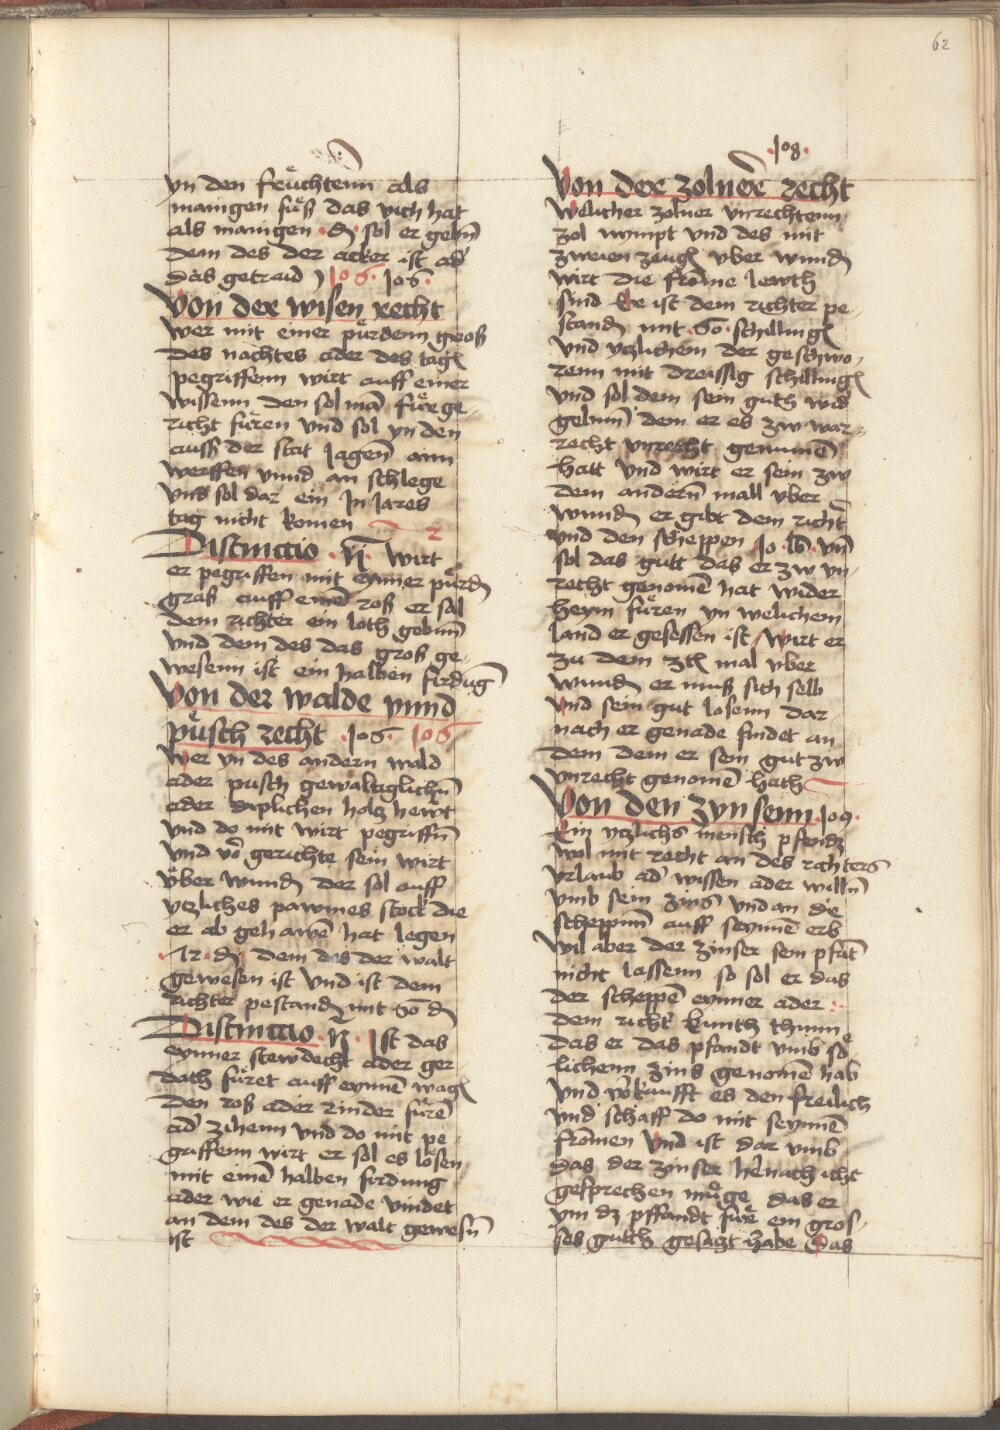 62
yn den früchtenn als
manigen fuß das vich hat
als manigen ₰ sol er gebn̄
dem des der acker ist ad̕
das getraid 106 · 106 ·
Von der wisen recht
wer mit einer pürdenn groß
des nachtes ader des tags
pegriffenn wirt auff einer
wissenn den sol mā für ge-
richt füren vnd sol yn den
auß der stat Jagen̄ ann
werffen vnnd an schlege
vnd sol dar ein Jn Jares
tag nicht komen 2
Distinctio · N̄ · wirt
er pegriffen mit eynner pürdn̄
graß auff einē roß er sol
dem richter ein loth gebnn̄
vnd dem des das groß ge-
wesenn ist ein halben firdūg
Von der walde vnnd
püsch recht · 106 · 106
Wer yn des andern wald
ader pusch gewaltiglichn̄
ader diplichen holz hewt
vnd do mit wirt pegriffn̄
vnd vō gerichte sein wirt
über wundn̄ der sol auff
ytzliches pawmes stock die
er ab gehawē hat legen
· 12 · ₰ dem des der walt
gewesen ist vnd ist dem
richter pestandn̄ mit 60 ₰
Distinctio · N̄ · Jst das
eynner stewdecht ader ger
dach füret auff eynnē wagn̄
den roß ader rinder fürē
ad̕ zihenn vnd do mit pe-
griffenn wirt er sol es lösen
mit einē halben firdung
ader wie er genade vindet
an dem des der walt gewesn̄
ist
· 108 ·
Von der zolner recht
Welicher zolner vnrechtenn
zol nympt vnd des mit
zweien zeugn̄ vber wundn̄
wirt die frōme lewth
sind Er ist dem richter pe-
standn̄ mit · 60 · schillingn̄
vnd ytzlichem der geschwo-
renn mit dreissig schillingn̄
vnd sol dem sein guth wid̕
gebnn̄ dem er es zw war-
recht vnrecht genumē
hatt vnd wirt er sein zw
dem andern̄ mall vber
wundn̄ er gibt dem richt̕
vnd den scheppen 10 · lb · vn̄
sol das gutt das er zw vn-
recht genomē hat wider
heym füren yn welichem
land er gesessen ist / wirt er
zu dem mal vber
wundn̄ er muß sich selb
vnd sein gut losenn dar
nach er genade findet an
dem dem er sein gut zw
vnrecht genomē hath
Von den zynsenn · 109 ·
Ein ytzlichs mensch pfendz
wol mit recht an des richters
vrlaub ad̕ wissen ader willn̄
vmb sein zins vnd an die
scheppnn̄ auff seynnē erb
wil aber der zinser sein pfāt
nicht lassenn so sol er das
der scheppē eynner ader
dem richt̕ kunth thunn
das er das pfandt vmb so
lichenn zins genomē hab
vnd v̕kaufft es den freilich
vnd schaff do mit seynnē
fromen vnd ist dar vmb
das der zinser hernach icht
gesprechen müge das er
ym dz pffandt für ein gros-
ses gutth gesatzt habe Das